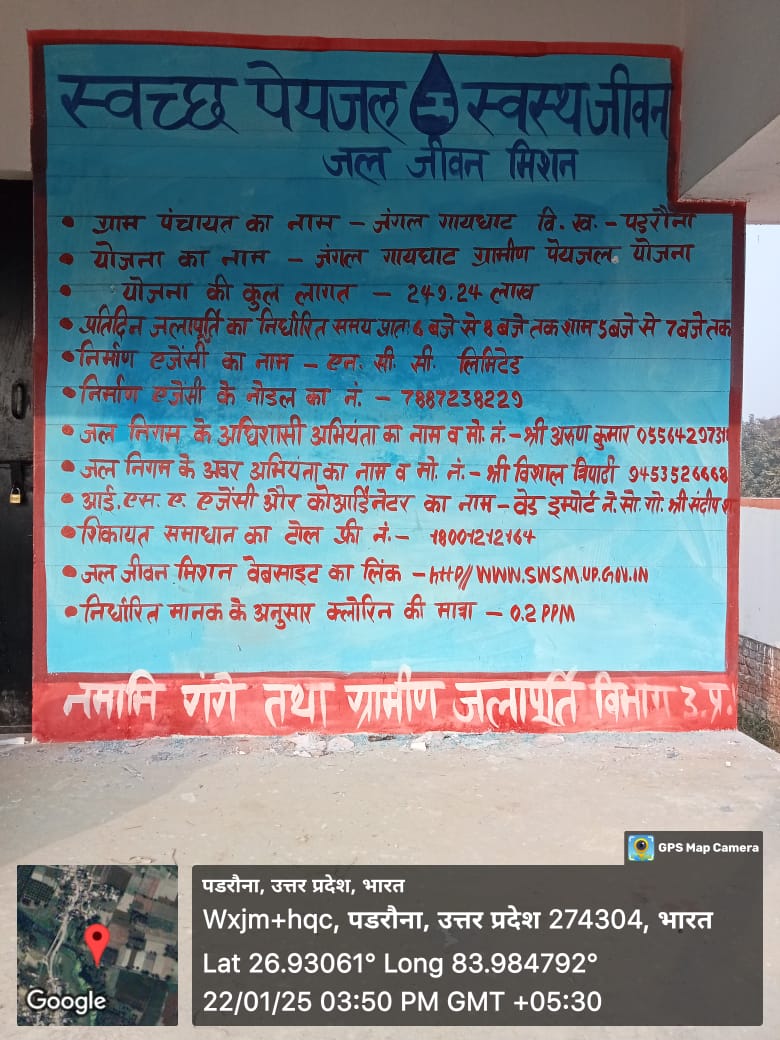 स्वच्छ पेयजल स्वस्थ जीवन
जल जीवन मिशन
• ग्राम पंचायत का नाम – जंगल गायघाट वि. ख. - पडरौना
• योजना का नाम – जंगल गायघाट ग्रामीण पेयजल योजना
• योजना की कुल लागत – 249.24 लाख
• प्रतिदिन जलापूर्ति का निर्धारित समय प्रातः 6 बजे से 8 बजे तक शाम 5 बजे से 7 बजे तक
• निर्माण एजेंसी का नाम – एन. सी. सी. लिमिटेड
• निर्माण एजेंसी के नोडल का नं. – 7887238229
• जल निगम के अधिशासी अभियंता का नाम व मो. नं.- श्री अरुण कुमार
• जल निगम के अवर अभियंता का नाम व मो. नं.- श्री विशाल त्रिपाठी 9453526668
• आई. एस. ए. एजेंसी और कोआर्डिनेटर का नाम – वेड इम्पोर्ट ने. सो. गो. श्री संदीप
• शिकायत समाधान का टोल फ्री नं.- 18001212164
• जल जीवन मिशन वेबसाइट का लिंक – http// WWW.SWSM.UP.GOV.IN
• निर्धारित मानक के अनुसार क्लोरिन की मात्रा – 0.2 PPM
नमामि गंगे तथा ग्रामीण जलापूर्ति विभाग उ.प्र.
GPS Map Camera
पडरौना, उत्तर प्रदेश, भारत
Wxjm+hqc, पडरौना, उत्तर प्रदेश 274304, भारत
Lat 26.93061° Long 83.984792°
22/01/25 03:50 PM GMT +05:30
Google